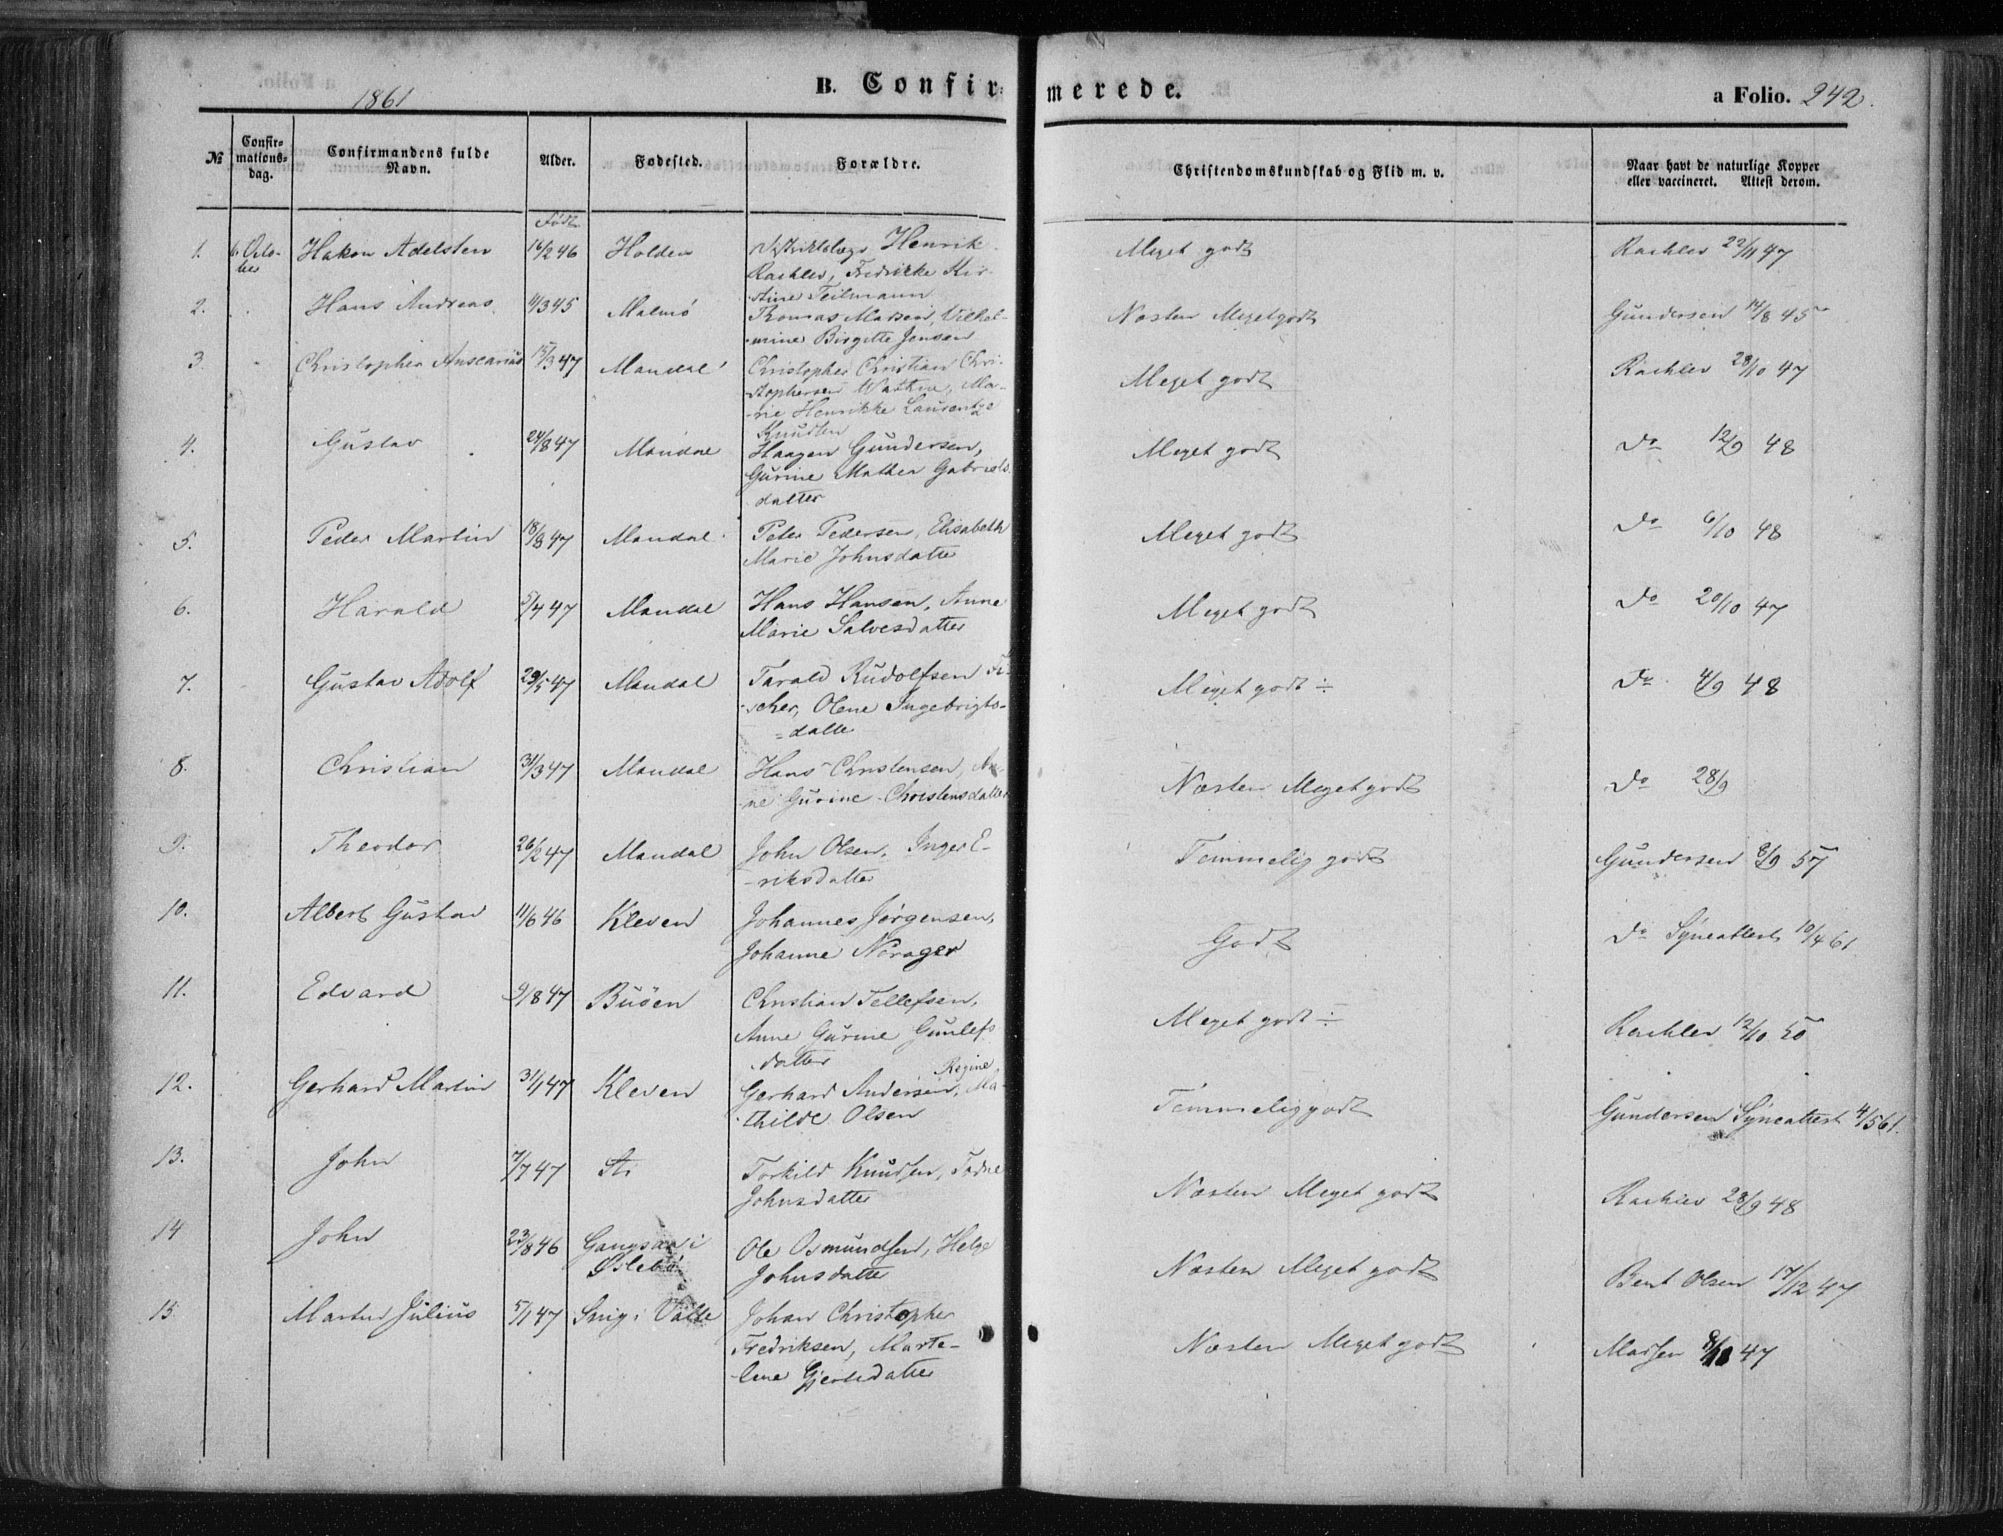 1861
B. Confirmerede.
a Folio. 242.
№ Confirmationsdag. Confirmandens fulde Navn. Alder. Fødested. Forældre. Christendomskundskab og Flid m. v. Naar havt de naturlige Kopper eller vaccineret. Attest derom.
Født
1. 6. October Hakon Adelsten 16/2 46 Holden Distriktslæge Henrik
Rachlev, Fredrikke Kir-
stine Teilmann Meget godt Rachlev 22/11 47
2. Hans Andreas 11/3 45 Malmö Thomas Madsen, Vilhel-
mine Birgitte Jensen Næsten Meget godt Gundersen 14/8 45
3 Christopher Anscarius 15/3 47 Mandal Christopher Christian Chri-
stophersen Wathne, Ma-
rie Henrikke Laurentze
Knudsen Meget godt Rachlev 28/10 47
4. Gustav 24/8 47 Mandal Haagen Gundersen,
Gurine Mathea Gabriels-
datter Meget godt Do 12/9 48
5. Peder Martin 18/8 47 Mandal Peter Pedersen, Elisabeth
Marie Johnsdatte Meget godt Do 6/10 48
6. Harald 5/4 47 Mandal Hans Hansen, Anne
Marie Salvesdatter Meget godt Do 20/10 47
7. Gustav Adolf 29/5 47 Mandal Tarald Rudolfsen Fi-
scher, Olene Ingebrigts-
datte Meget godt ÷ Do 4/9 48
8. Christian 31/3 47 Mandal Hans Christensen, An-
ne Gurine Christensdatter Næsten Meget godt Do 28/9
9. Theodor 26/2 47 Mandal John Olsen, Inger E-
riksdatter Temmelig godt Gundersen 8/9 57
10. Albert Gustav 11/6 46 Kleven Johannes Jørgensen,
Johanne Norager Godt Do Syneattest 10/4 61
11. Edvard 9/8 47 Buöen Christian Tellefsen,
Anne Gurine Gunlefs
datter Meget godt ÷ Rachlev 12/10 50
12. Gerhard Martin 31/1 47 Kleven Gerhard Andersen, Regine Ma-
thilde Olsen Temmelig godt Gundersen Syneattest 4/5 61.
13. John 7/7 47 Torkild Knudsen, Todne
Johnsdatter Næsten Meget godt Rachlev 28/9 48
14 John 23/8 46 i
Øslebø Ole Osmundsen, Helge
Johnsdatte Næsten Meget godt Bent Olsen 17/12 47
15. Martin Julius 5/1 47 Snig i Valle Johan Christopher
Fredriksen, Marte-
lene Gjertsdatter Næsten Meget godt Madsen 47